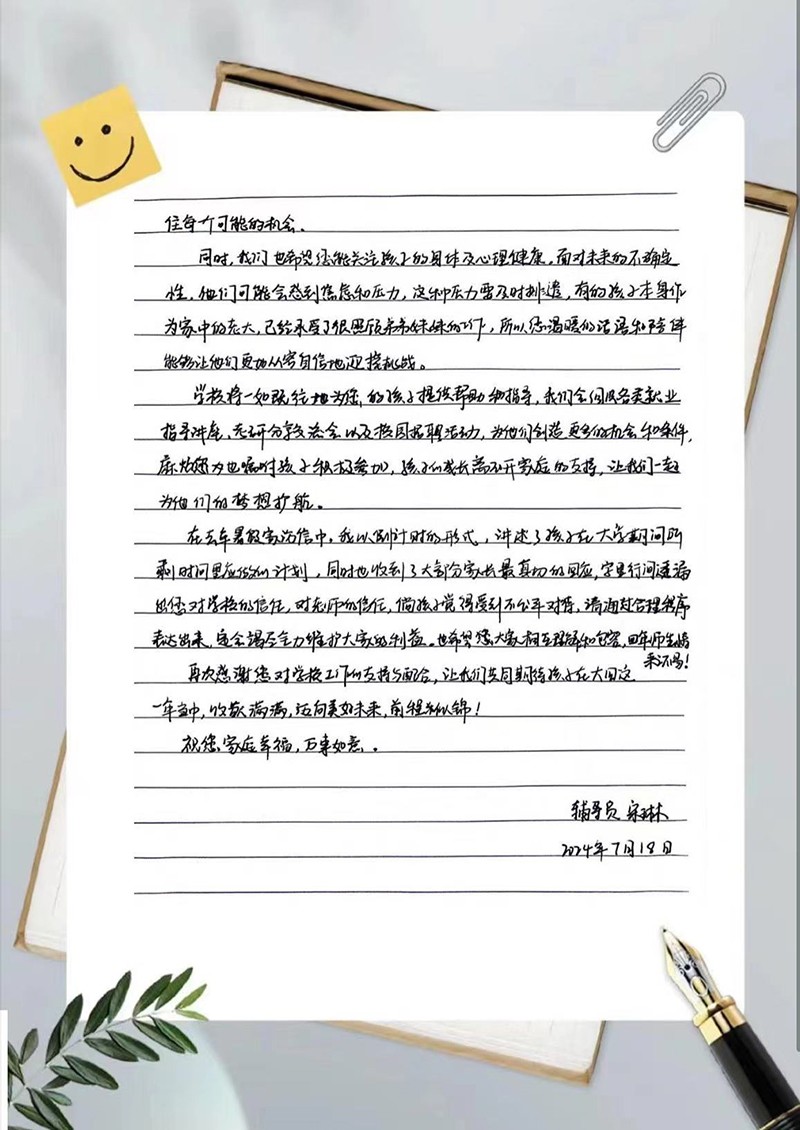 住每个可能的机会。
同时，我们也希望您能关注孩子的身体及心理健康，面对未来的不确定
性，他们可能会感到焦虑和压力，这种压力需及时排遣，有的孩子本身作
为家中的老大，已经承受了很照顾弟弟妹妹的工作，所以您温暖的话语和陪伴
能够让他们更加从容自信地迎接挑战。
学校将一如既往地为您的孩子提供帮助和指导，我们会组织各类就业
指导讲座、考研分享交流会以及校园招聘活动，为他们创造更多的机会和条件，
麻烦您为也嘱咐孩子积极参加，孩子们成长离不开家庭的支持，让我们一起
为他们的梦想护航。
在去年暑假家访信中，我以倒计时的形式，讲述了孩子在大学期间所
剩时间里应做的计划，同时也收到了大部分家长最真切的回应，字里行间透漏
的您对学校的信任，对老师的信任，倘孩子觉得受到不公平对待，请通过合理程序
表达出来，定会竭尽全力维护大家的利益。也希望您大家相互理解和包容，四年师生情
来之不易！
再次感谢您对学校工作的支持与配合，让我们共同期待孩子在大四这
一年当中，收获满满，迈向美好未来，前程似锦！
祝您家庭幸福，万事如意。
辅导员 宋琳
2024年7月18日